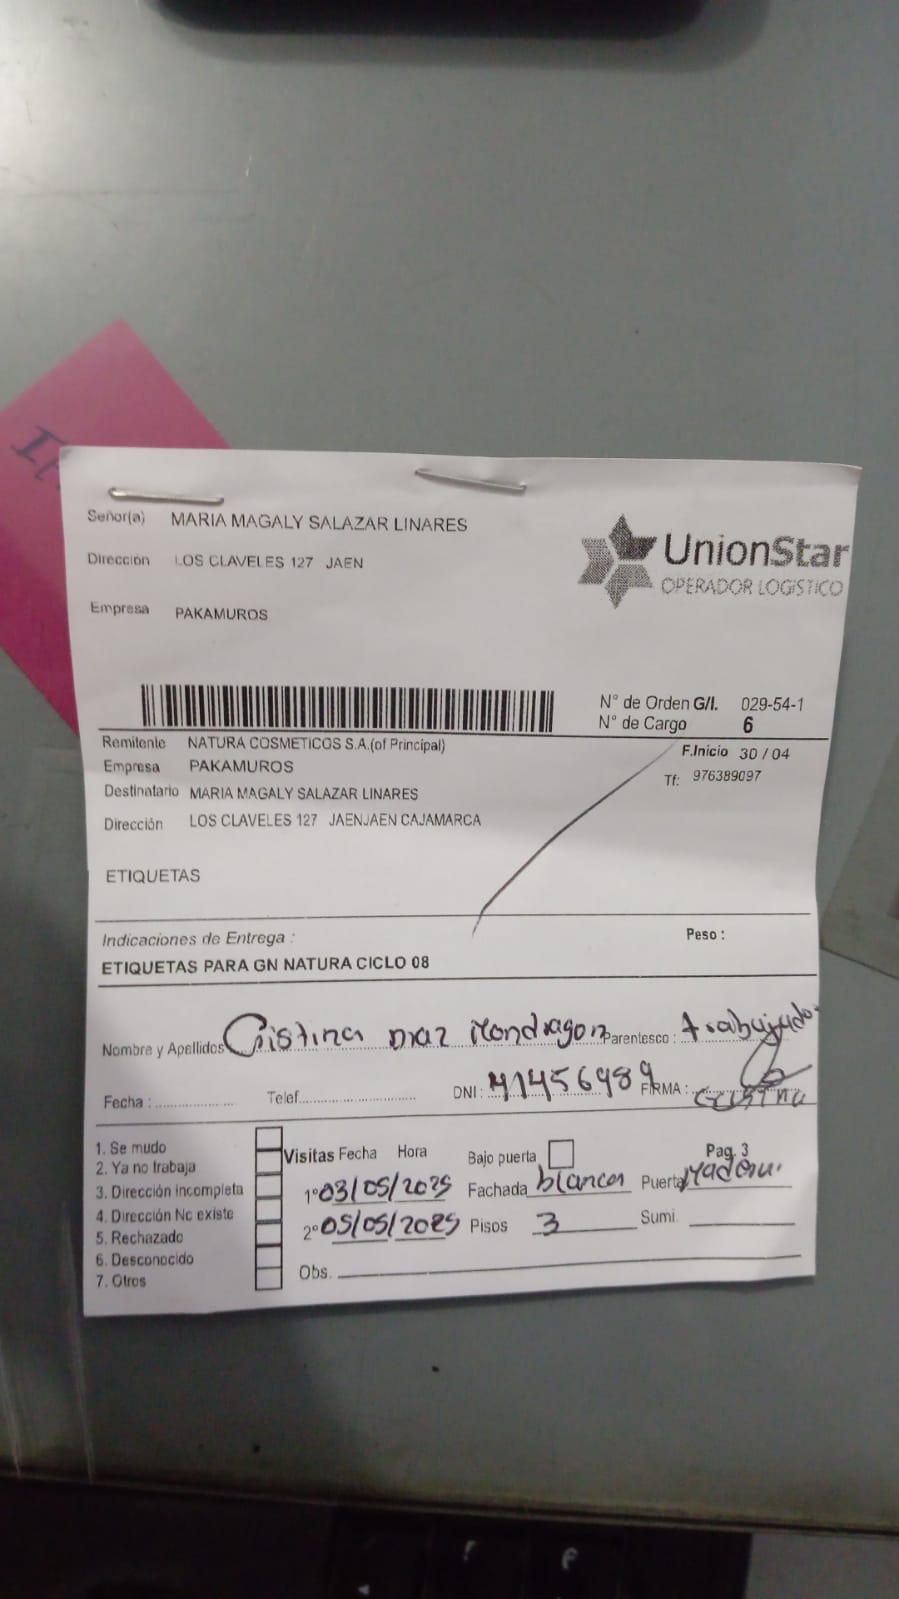 Señor(a) MARIA MAGALY SALAZAR LINARES
Dirección LOS CLAVELES 127 JAEN
Empresa PAKAMUROS
UnionStar
OPERADOR LOGISTICO
N° de Orden G/I. 029-54-1
N° de Cargo 6
Remitente NATURA COSMETICOS S.A.(of Principal)
F.Inicio 30 / 04
Empresa PAKAMUROS
Tf: 976389097
Destinatario MARIA MAGALY SALAZAR LINARES
Dirección LOS CLAVELES 127 JAENJAEN CAJAMARCA
ETIQUETAS
Indicaciones de Entrega :
Peso :
ETIQUETAS PARA GN NATURA CICLO 08
Nombre y Apellidos Cristina Diaz Mondragon Parentesco : trabajado
Fecha : Telef. DNI : 41456989 FIRMA :
1. Se mudo
2. Ya no trabaja
3. Dirección incompleta
4. Dirección No existe
5. Rechazado
6. Desconocido
7. Otros
Visitas Fecha Hora Bajo puerta Pag. 3
1° 03/05/2025 Fachada blanca Puerta Madera
2° 05/05/2025 Pisos 3 Sumi.
Obs.